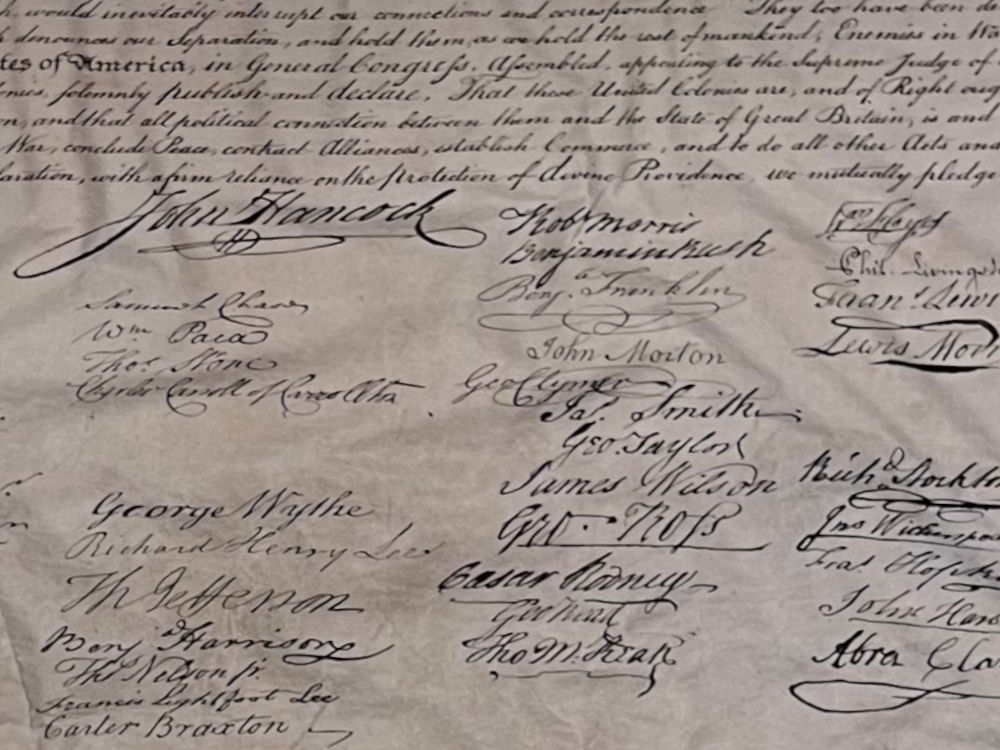 would inevitably interrupt our connections and correspondence They too have been de
denounces our Separation, and hold them, as we hold the rest of mankind, Enemies in Wa
tes of America, in General Congress, Assembled, appealing to the Supreme Judge of
onies, solemnly publish and declare, That these United Colonies are, and of Right oug
n, and that all political connection between them and the State of Great Britain, is and
War, conclude Peace, contract Alliances, establish Commerce, and to do all other Acts and
laration, with a firm reliance on the Protection of divine Providence, we mutually pledge
John Hancock
Samuel Chase
Wm Paca
Thos Stone
Charles Carroll of Carrollton
George Wythe
Richard Henry Lee
Th Jefferson
Benj Harrison
Thos Nelson jr.
Francis Lightfoot Lee
Carter Braxton
Robt Morris
Benjamin Rush
Benj. Franklin
John Morton
Geo Clymer
Jas. Smith
Geo. Taylor
James Wilson
Geo. Ross
Caesar Rodney
Geo Read
Tho M. Kean
Wm Floyd
Phil. Livingst
Frans. Lewi
Lewis Morr
Richd Stockto
Jno Witherspoo
Fras Hopk
John Hars
Abra Cla